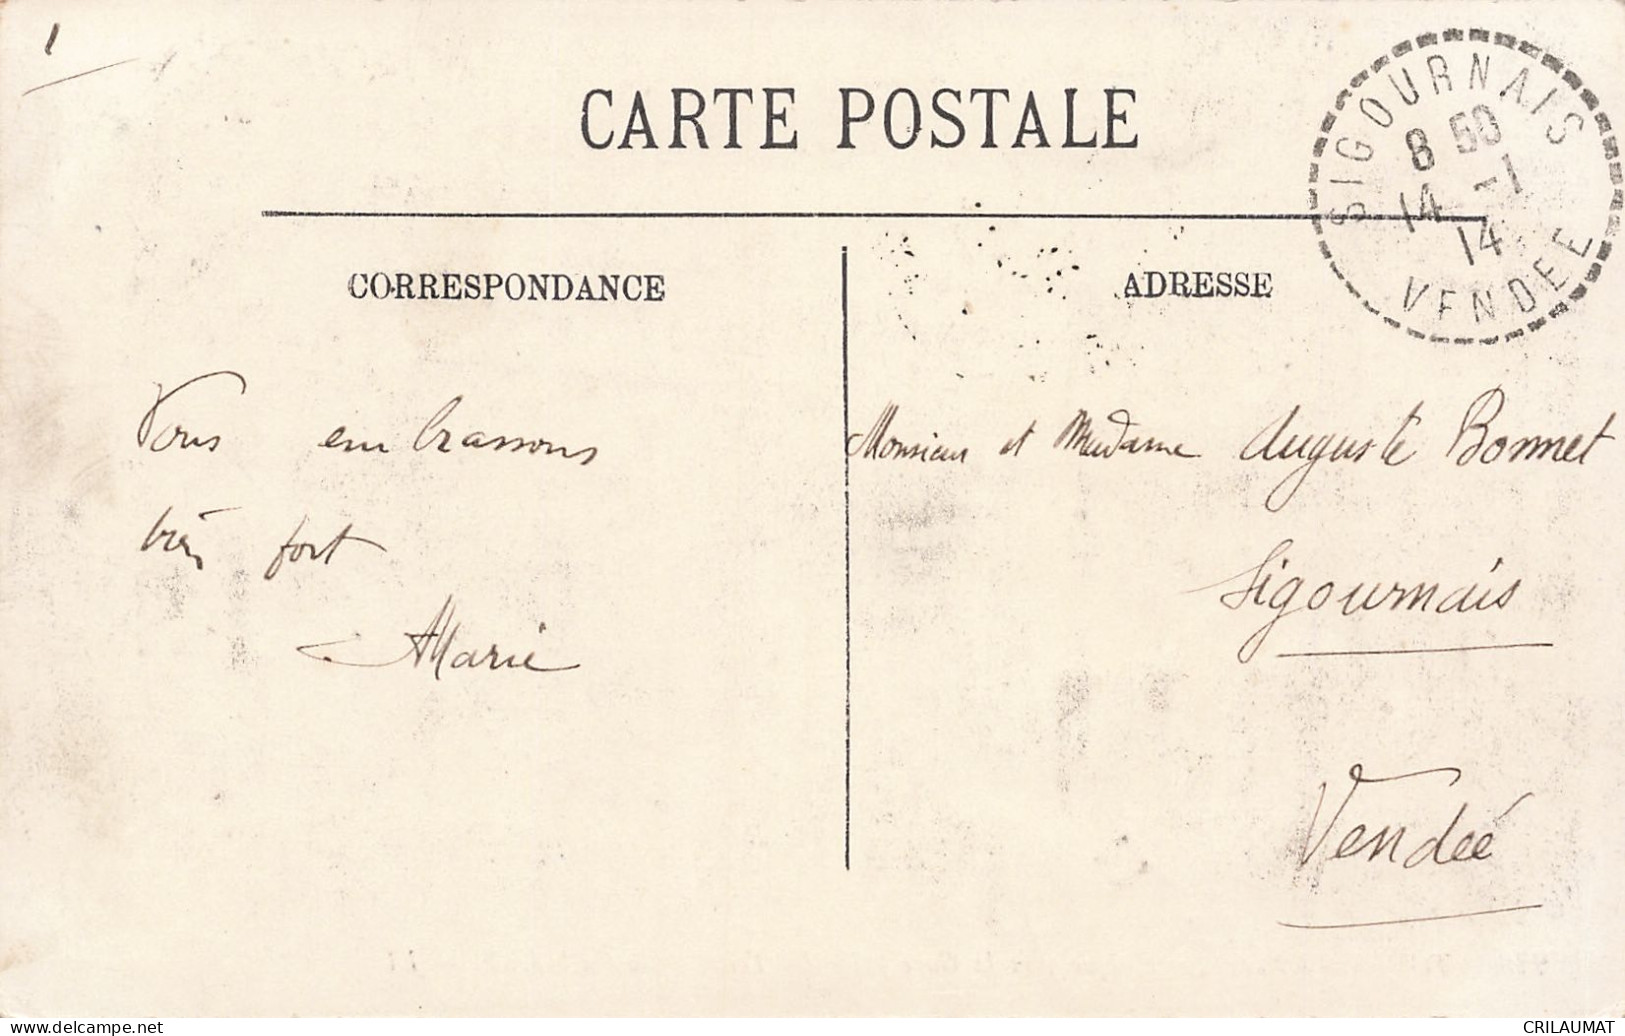 1
CARTE POSTALE
SIGOURNAIS
8 50
14 -1
14
VENDEE
CORRESPONDANCE
ADRESSE
Vous embrassons
bien fort
Marie
Monsieur et Madame Auguste Bonnet
Sigournais
Vendée
www.delcampe.net
CRILAUMAT